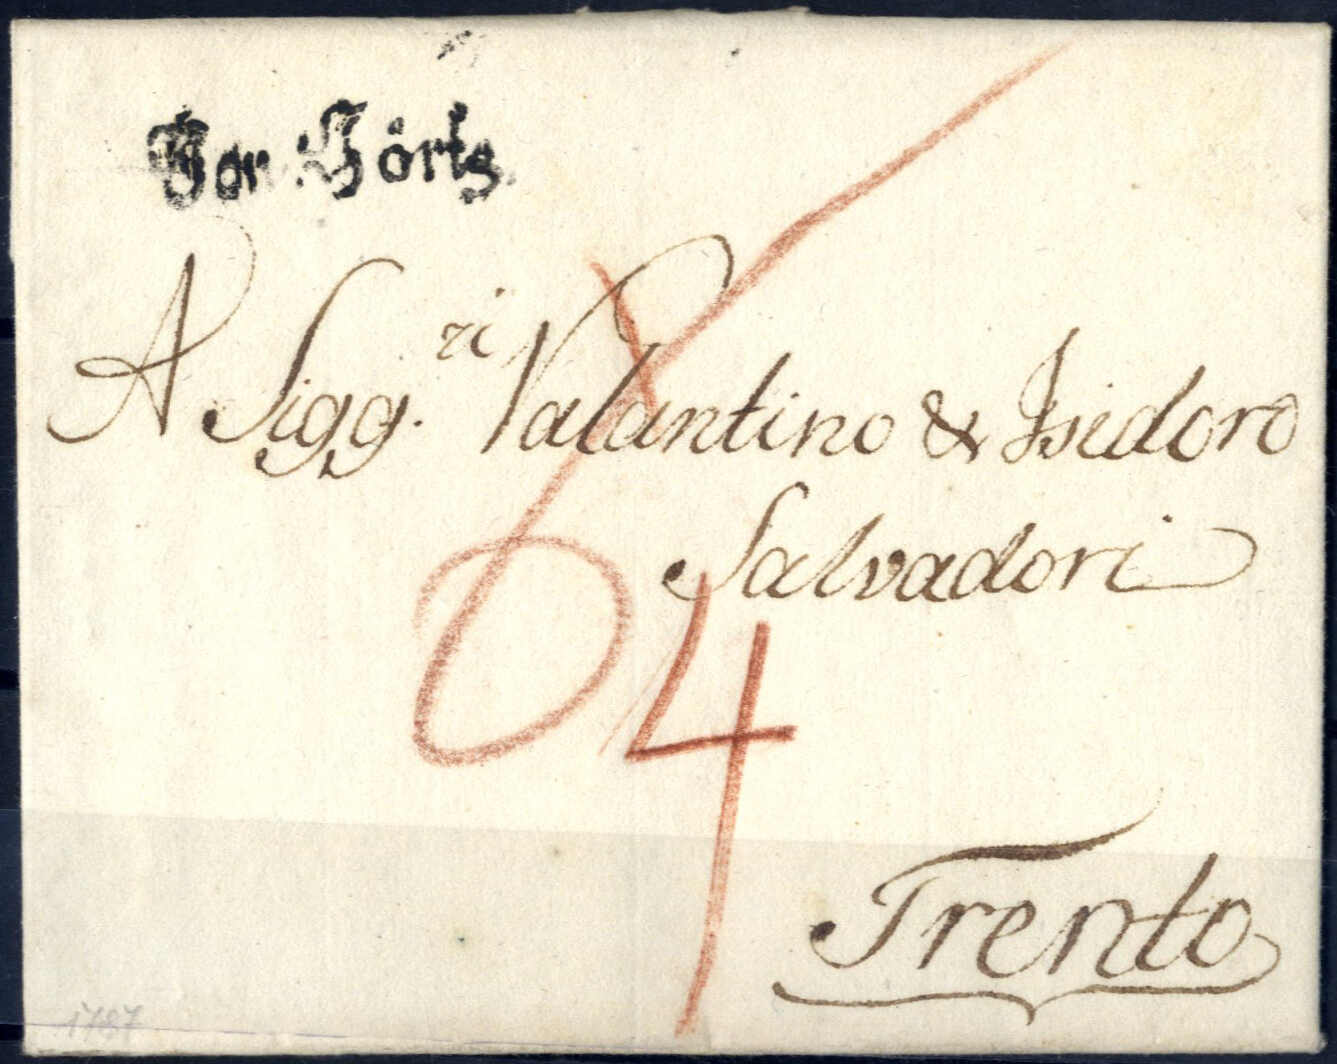 Von Görtz
A Sigg.ri Valantino & Isidoro
Salvadori
4
Trento
1787